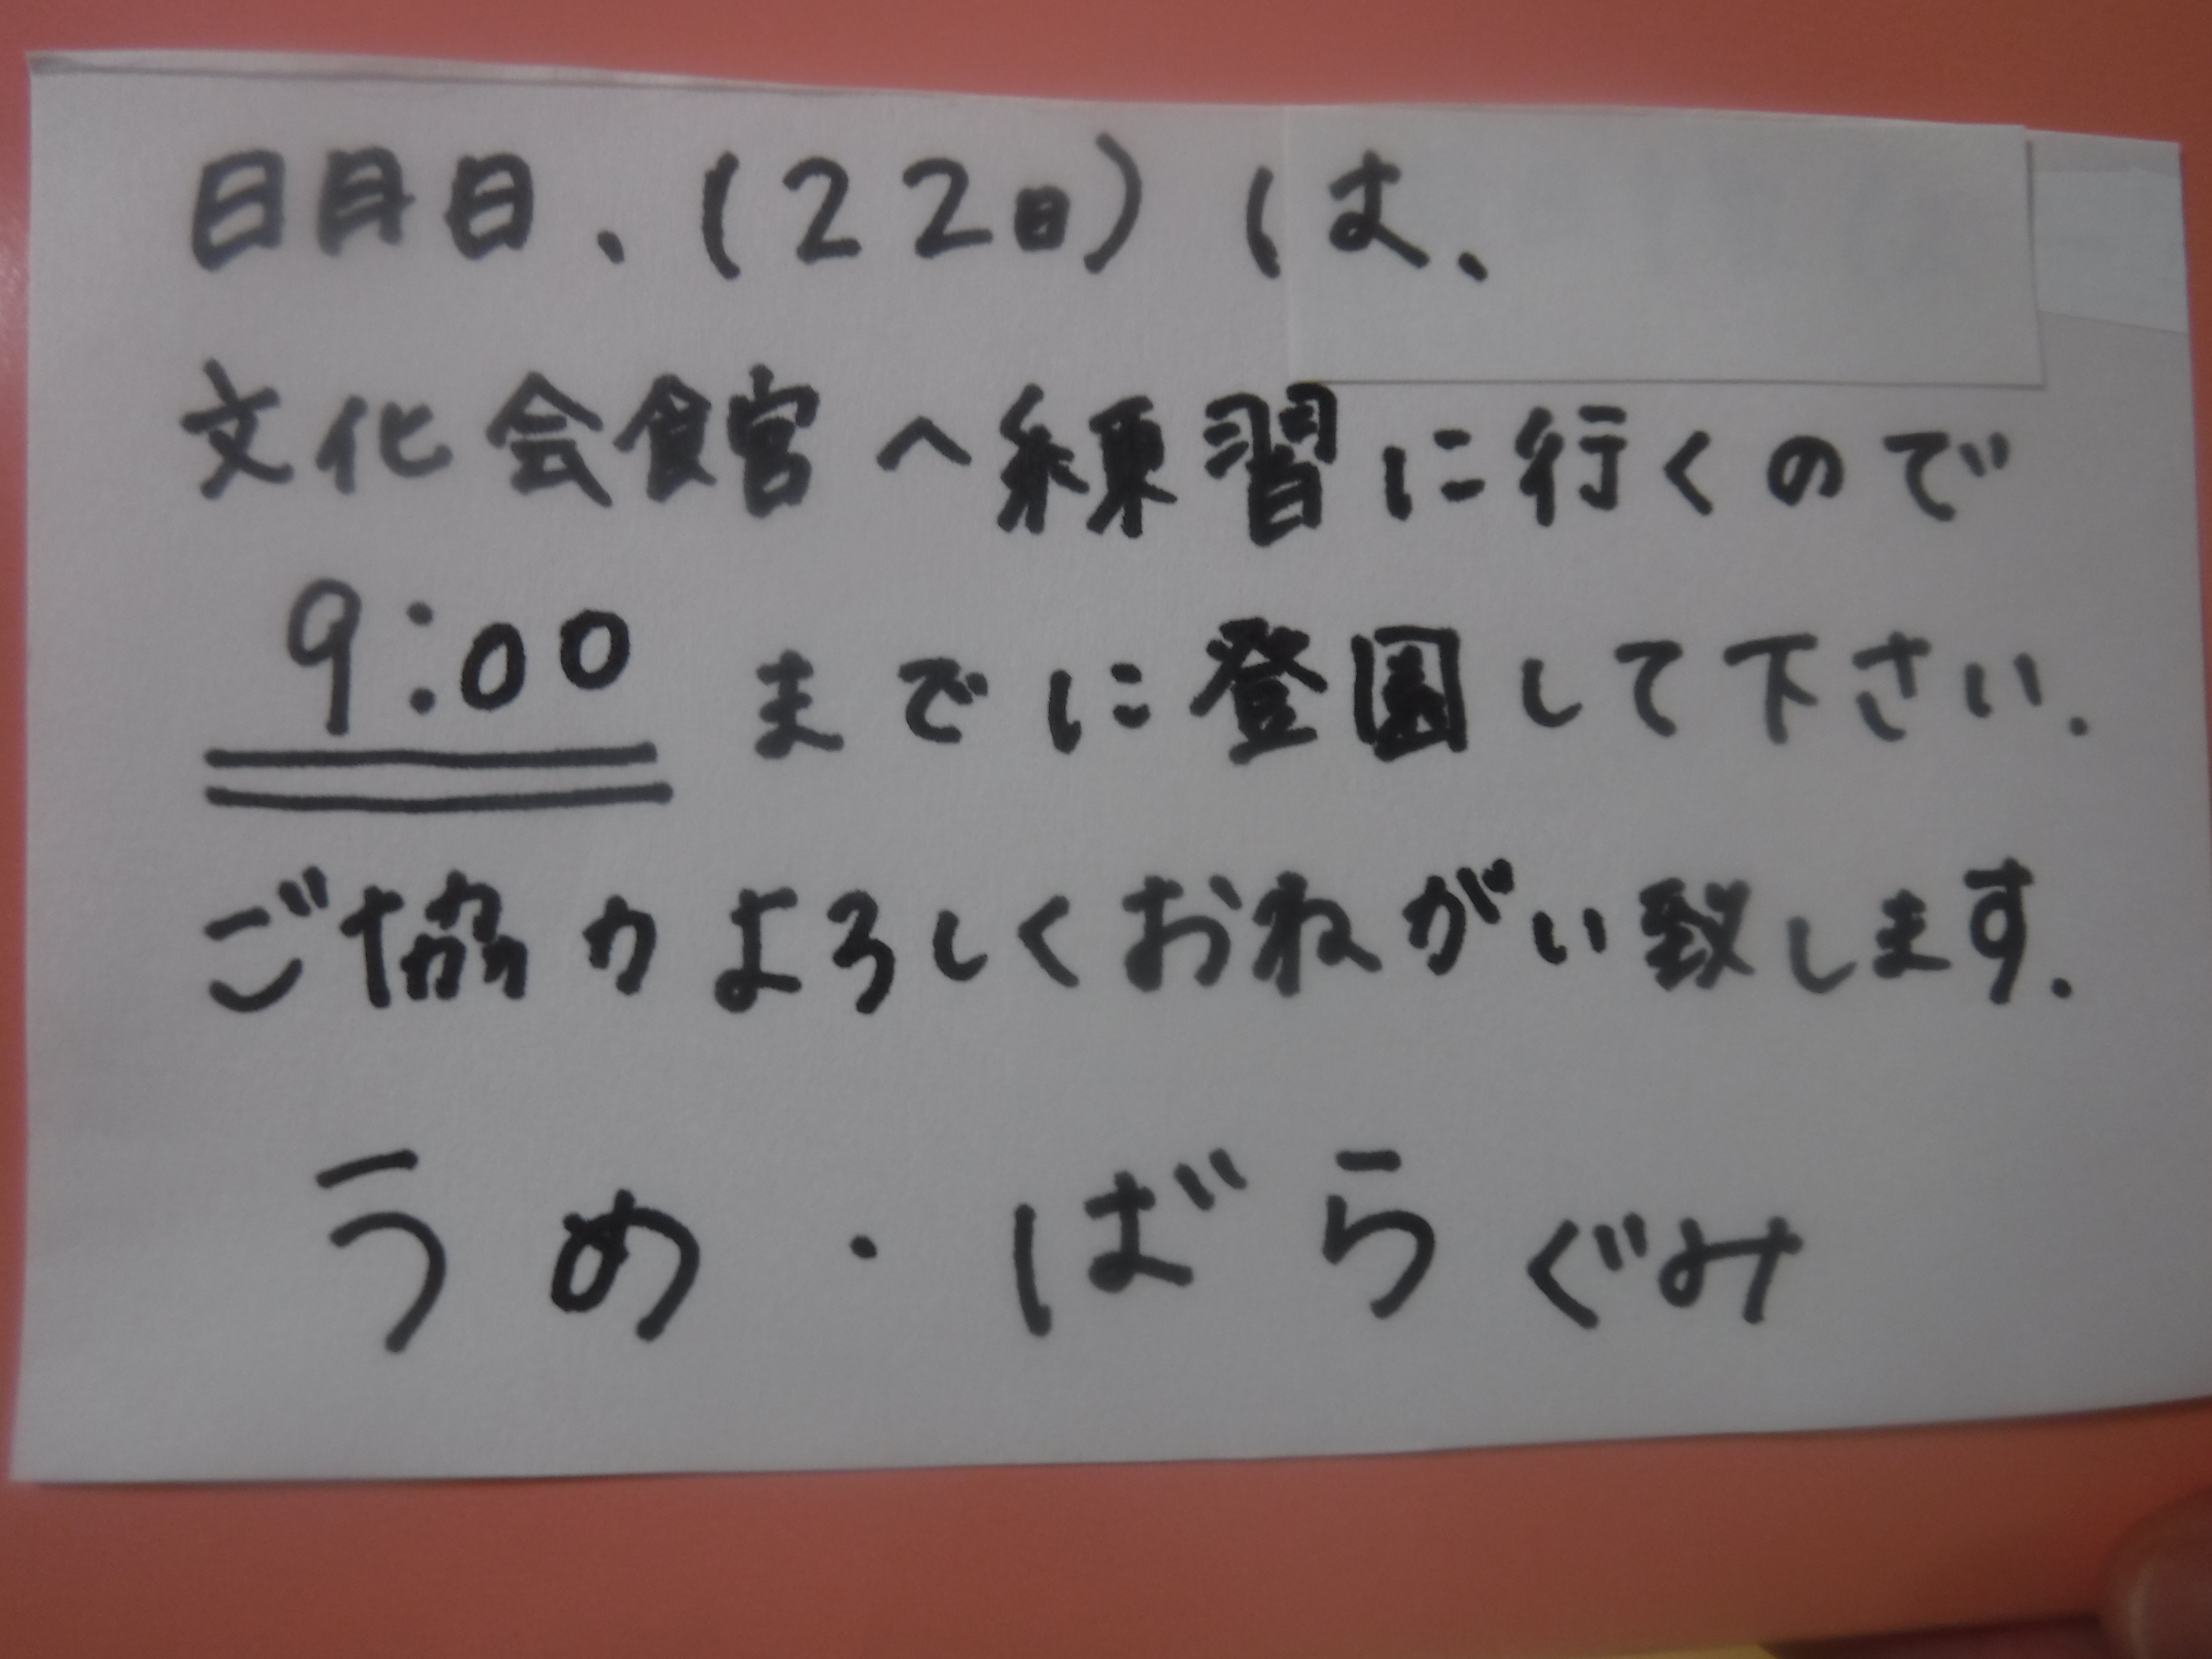 明日、(22日)は、
文化会館へ練習に行くので
9:00までに登園して下さい.
ご協力よろしくおねがい致します.
うめ・ばらぐみ